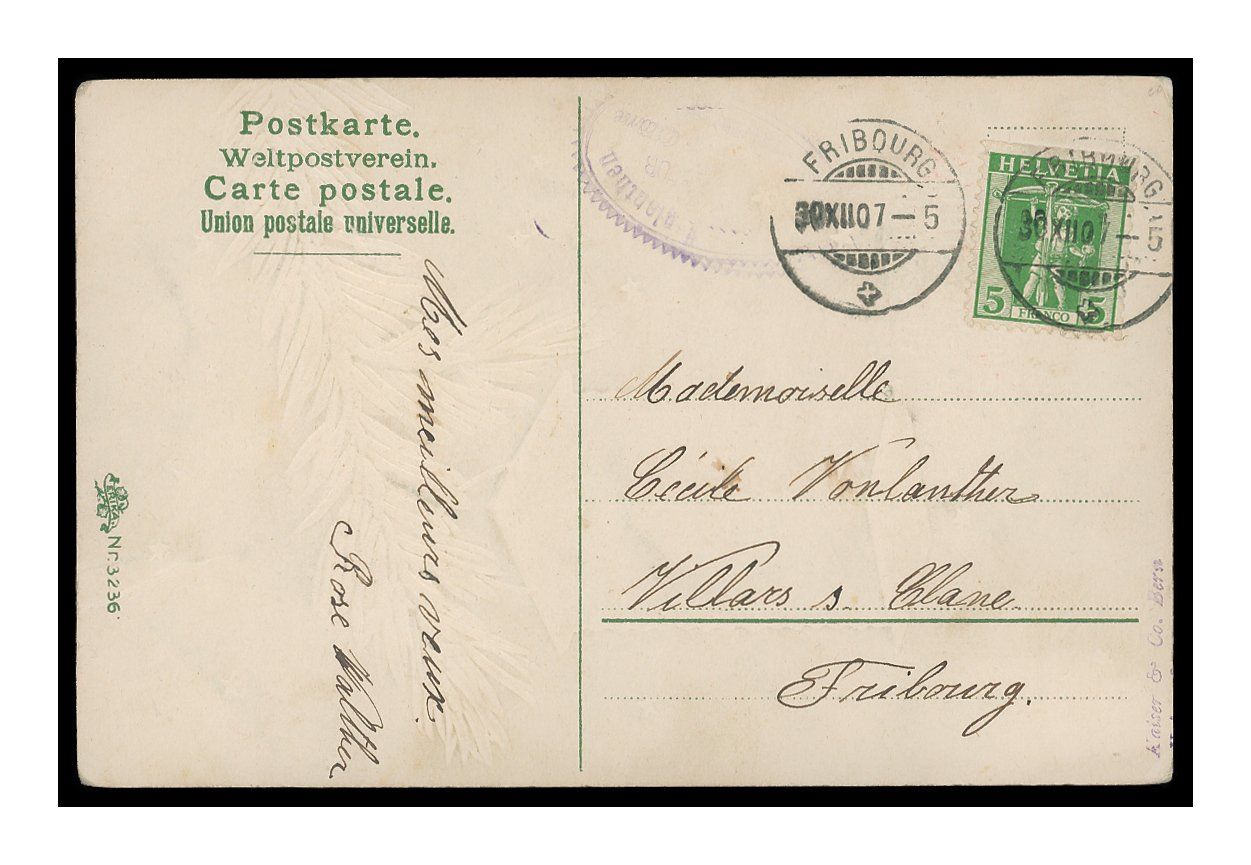 Postkarte.
Weltpostverein.
Carte postale.
Union postale universelle.
Mes meilleurs vœux.
Rose Walther
ERIKA
Nr. 3236
FRIBOURG
30 XII 07 – 5
HELVETIA
5 FRANCO 5
30 XII 07 – 5
Mademoiselle
Cécile Vonlanthen
Villars s. Glane.
Fribourg.
Kaiser & Co. Bern